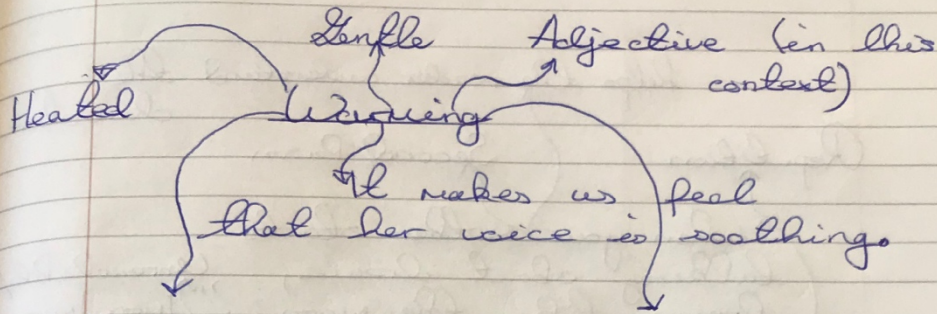 Gentle
Adjective (in this
context)
Heated
Warming
It makes us feel
that her voice is soothing.